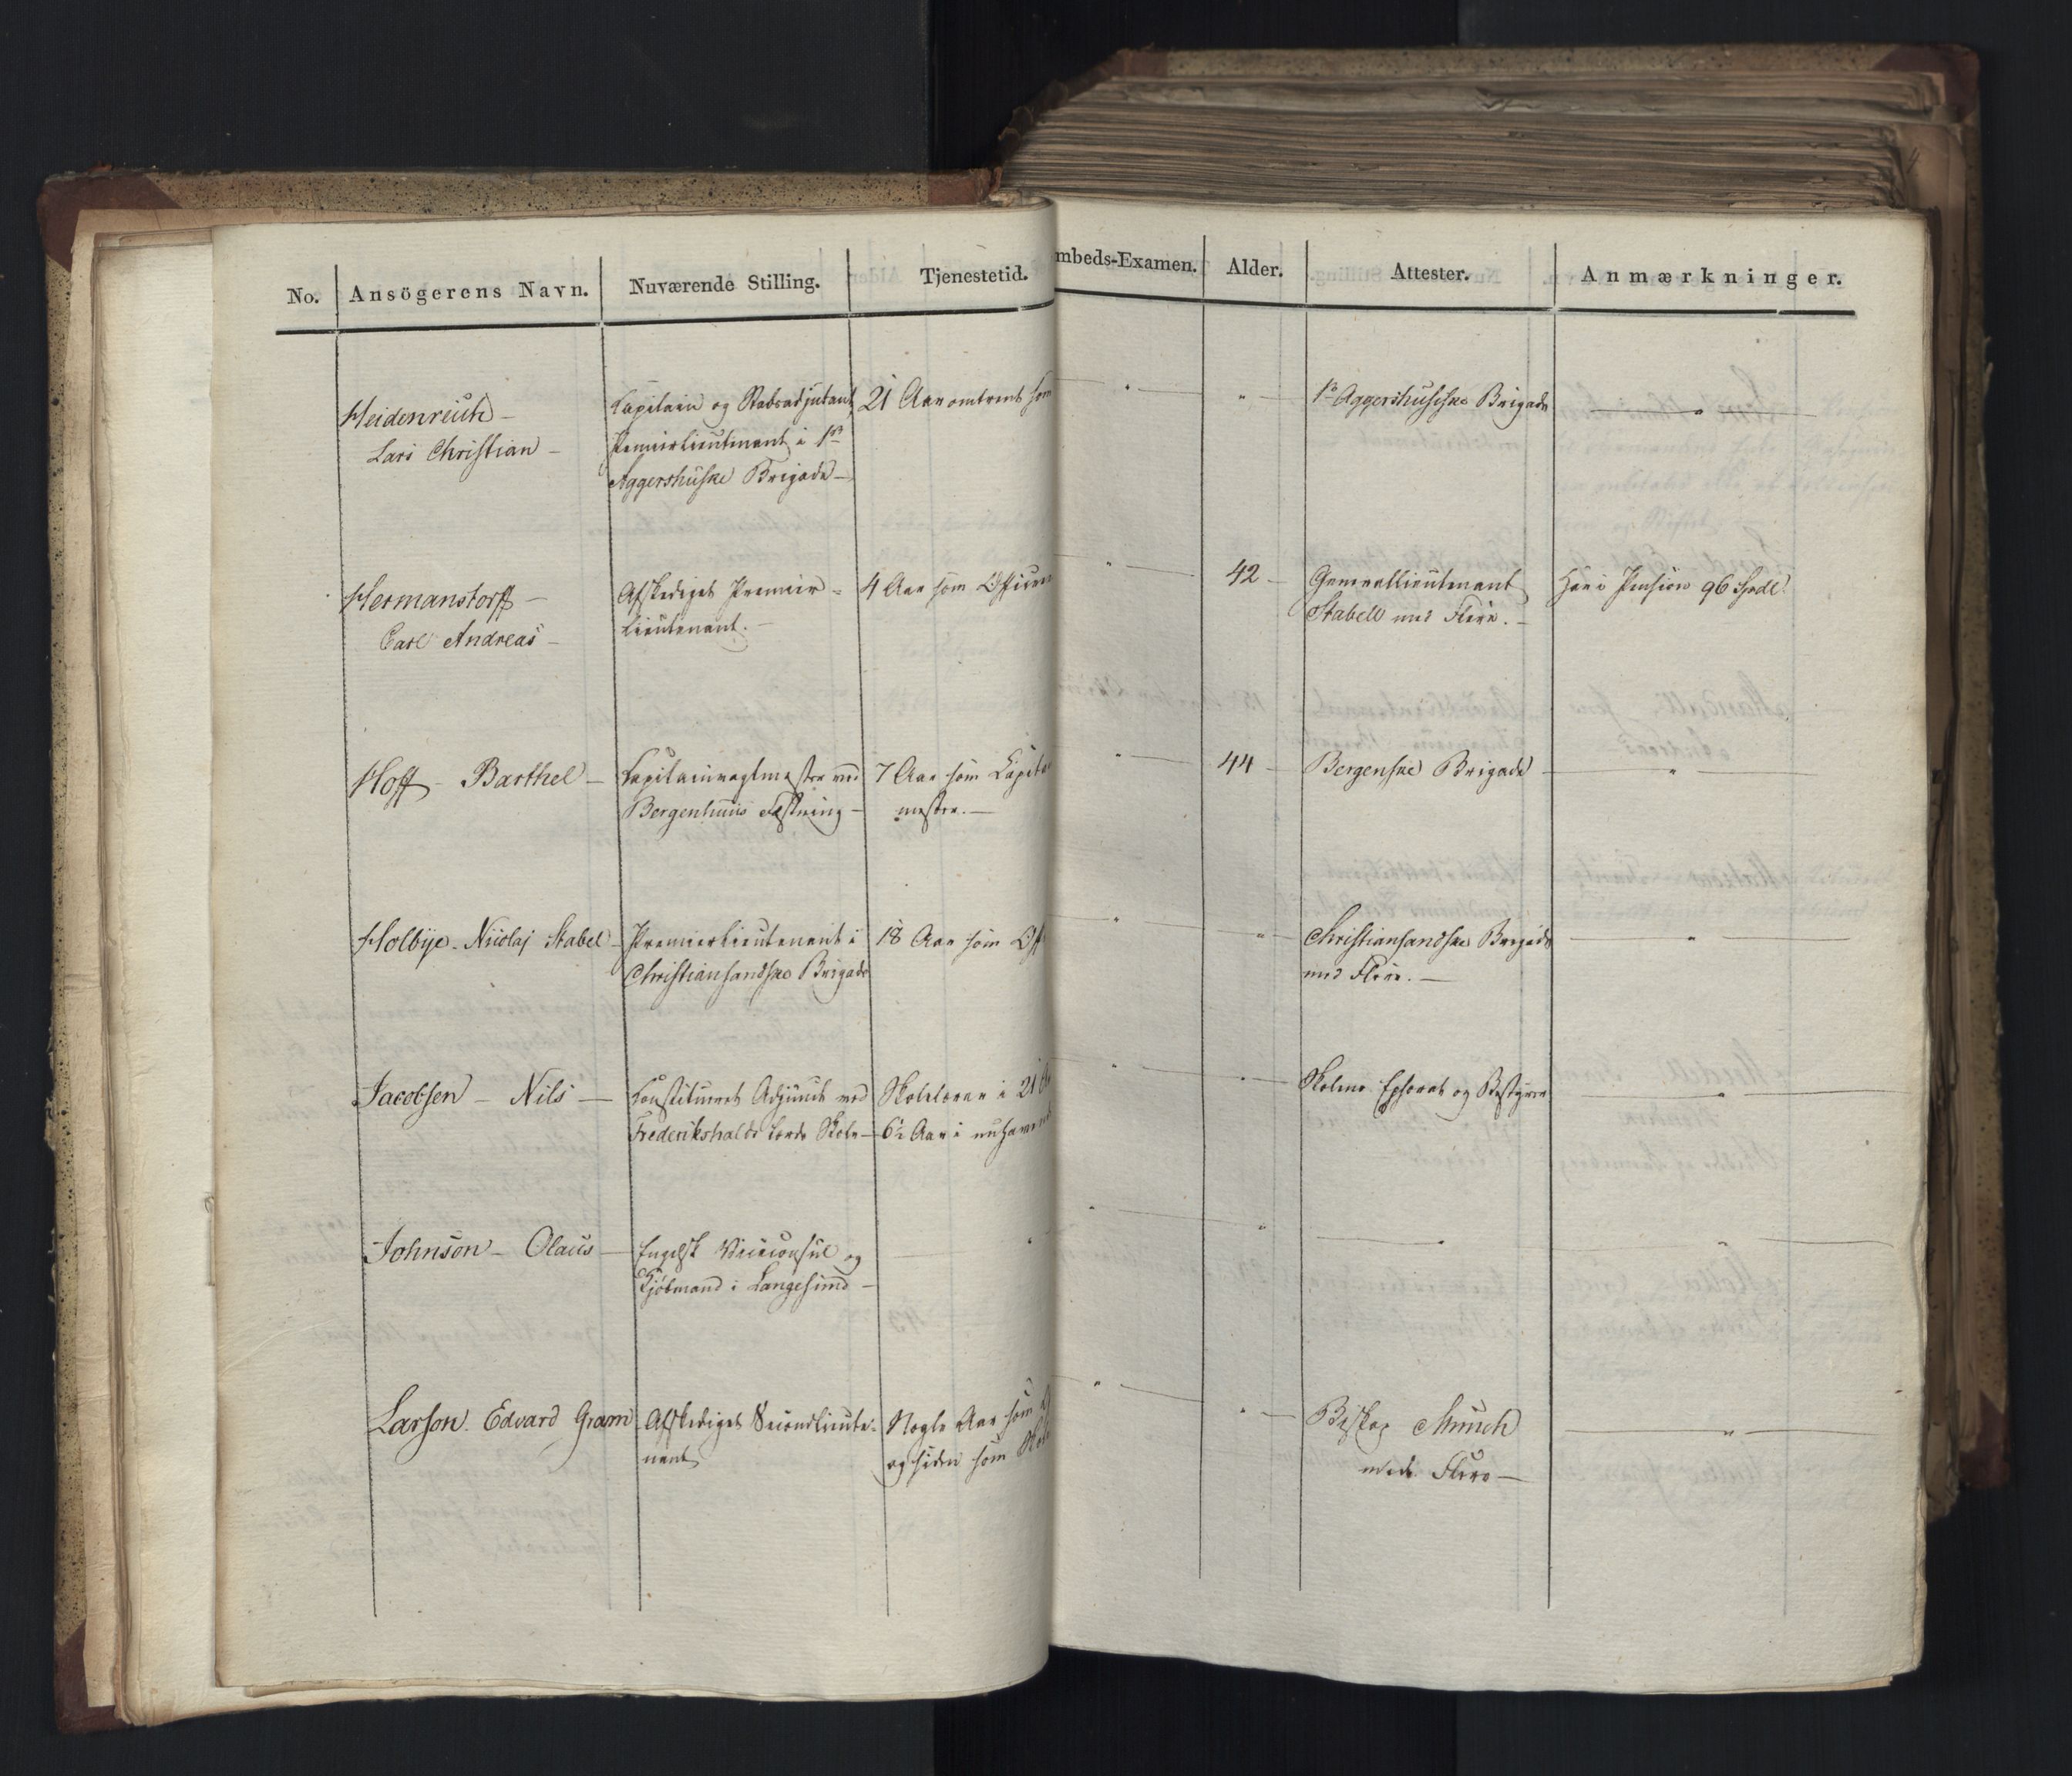 No. Ansögerens Navn. Nuværende Stilling. Tjenestetid. mbeds-Examen. Alder. Attester. Anmærkninger.
Heidenreich –
Lars Christian –
Capitain og Stabsadjutant,
Premierlieutenant i 1ste
Aggershuske Brigade –
21 Aar omtrent som
"
"
1ste Aggershusiske Brigade
"
Hermanstorff –
Carl Andreas –
Afskediget Premier-
lieutenant. –
4 Aar som Officeer
"
42 –
Generallieutenant
Stabell med Flere. –
Har i Pension 96 Spdl.
Hoff – Barthel –
Capitainvagtmester ved
Bergenhuus Fæstning –
7 Aar som Capitai
mester. –
"
44 –
Bergenske Brigade
"
Holbye – Nicolaj Stabel –
Premierlieutenant i
Christiansandske Brigade
18 Aar som Off
"
"
Christiansandske Brigade
med Flere. –
"
Jacobsen – Nils –
Constitueret Adjunct ved
Frederikshalds lærde Skole –
Skolelærer i 21 Aa
6½ Aar i nuhavend
"
"
Skolens Ephorat og Bestyrer
"
Johnson – Olaus –
Engelsk Viceconsul og
Kjöbmand i Langesund –
"
"
"
"
"
Larson. Edvard Gram
Afskediget Secondlieute-
nant
Nogle Aar som O
og siden som Skole
"
"
Biskop Munch
med Flere –
"